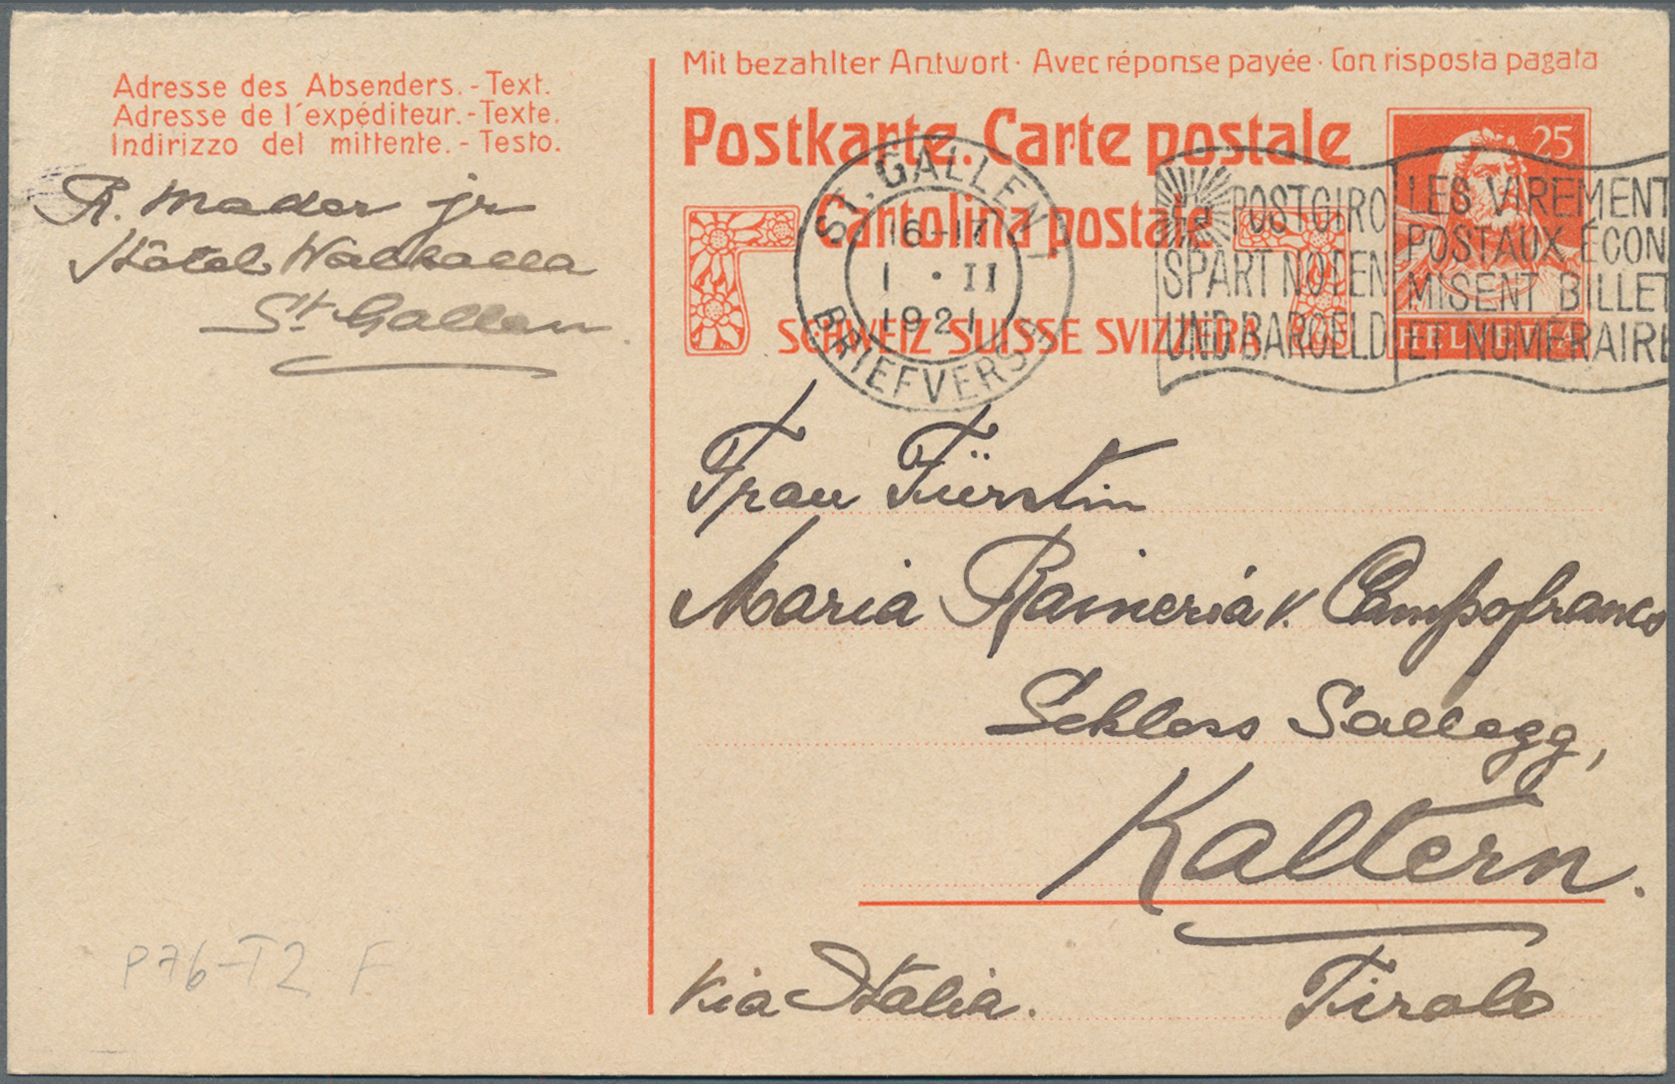 Adresse des Absenders. - Text.
Adresse de l'expéditeur. - Texte.
Indirizzo del mittente. - Testo.
R. Mader jr
Hôtel Walhalla
St. Gallen
P76-T2 F
Mit bezahlter Antwort · Avec réponse payée · Con risposta pagata
Postkarte. Carte postale
Cartolina postale
SCHWEIZ SUISSE SVIZZERA
25
HELVETIA
ST. GALLEN 1
16-17
1 · II
1921
BRIEFVERS.
POSTGIRO
SPART NOTEN
UND BARGELD
LES VIREMENT
POSTAUX ÉCON
MISENT BILLET
ET NUMÉRAIRE
Frau Fürstin
Maria Raineria v. Campofranco
Schloss Sallegg,
Kaltern.
Via Italia. Tirolo